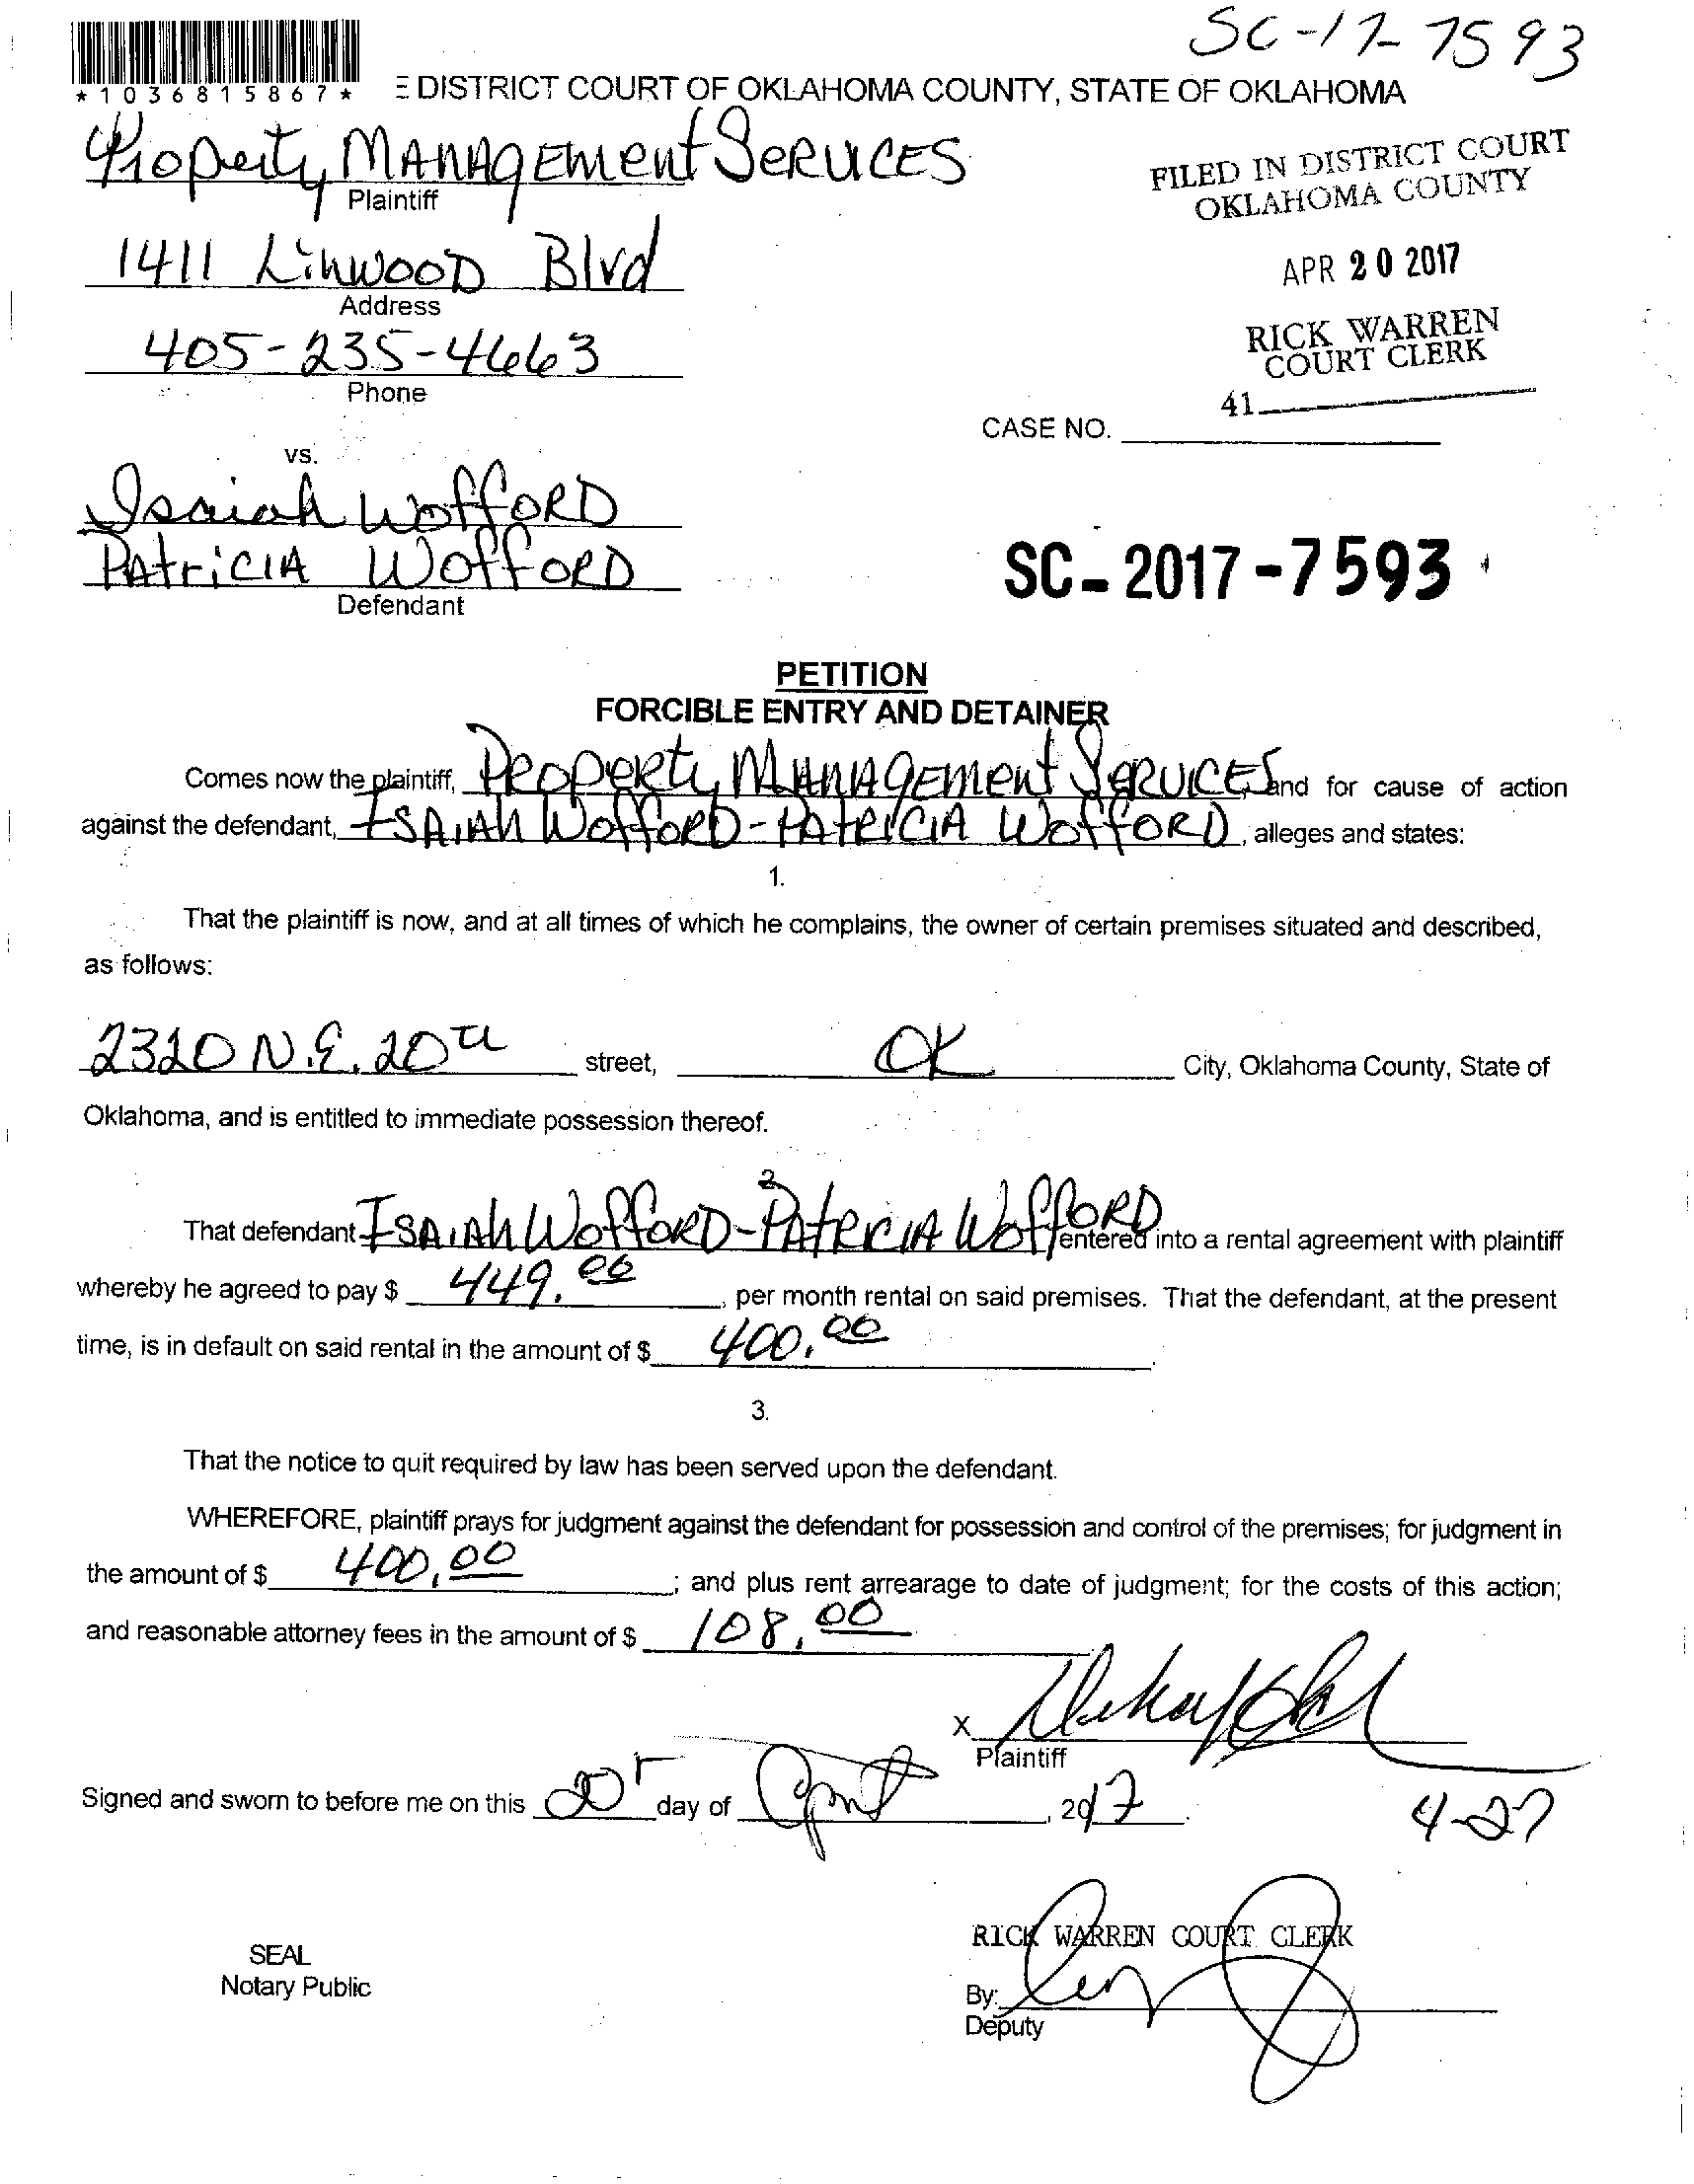 SC-17-7593
*1036815867*
E DISTRICT COURT OF OKLAHOMA COUNTY, STATE OF OKLAHOMA
Property Management Services
Plaintiff
FILED IN DISTRICT COURT
OKLAHOMA COUNTY
1411 Linwood Blvd
Address
APR 20 2017
405-235-4663
Phone
RICK WARREN
COURT CLERK
41
CASE NO.
vs.
Isaiah Wofford
Patricia Wofford
Defendant
SC-2017-7593
PETITION
FORCIBLE ENTRY AND DETAINER
Comes now the plaintiff, Property Management Services and for cause of action
against the defendant, Isaiah Wofford - Patricia Wofford, alleges and states:
1.
That the plaintiff is now, and at all times of which he complains, the owner of certain premises situated and described,
as follows:
2320 N.E. 20th street, OK City, Oklahoma County, State of
Oklahoma, and is entitled to immediate possession thereof.
2.
That defendant Isaiah Wofford - Patricia Wofford entered into a rental agreement with plaintiff
whereby he agreed to pay $ 449.00, per month rental on said premises. That the defendant, at the present
time, is in default on said rental in the amount of $ 400.00.
3.
That the notice to quit required by law has been served upon the defendant.
WHEREFORE, plaintiff prays for judgment against the defendant for possession and control of the premises; for judgment in
the amount of $ 400.00; and plus rent arrearage to date of judgment; for the costs of this action;
and reasonable attorney fees in the amount of $ 108.00
X
Plaintiff
Signed and sworn to before me on this 20 day of April, 2017.
4-27
RICK WARREN COURT CLERK
SEAL
Notary Public
By:
Deputy